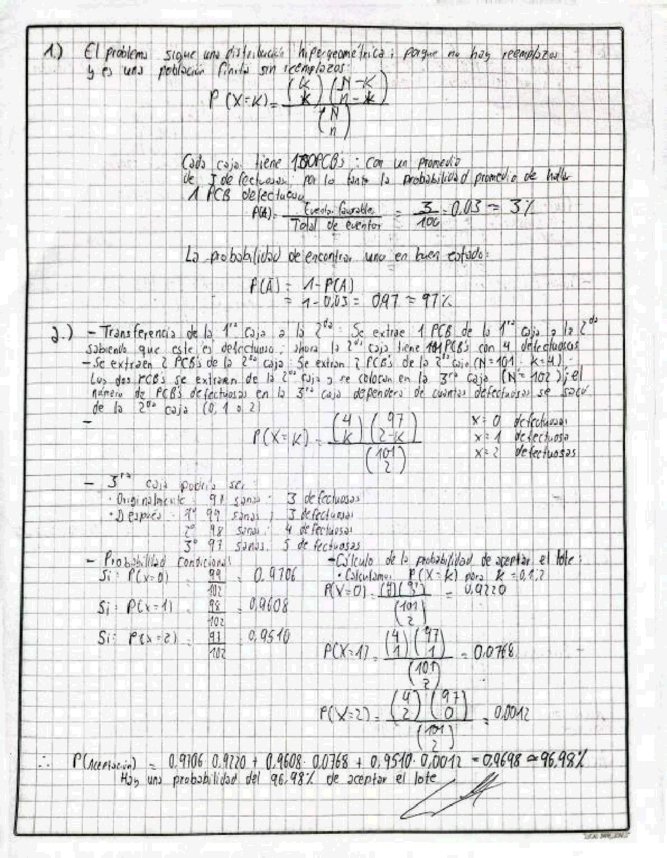 1.) El problema sigue una distribución hipergeométrica; porque no hay reemplazos
y es una población finita sin reemplazos:
P(X=K) = (K k) (N-K n-k) / (N n)
Cada caja tiene 100PCB's: con un promedio
de 3 defectuosas; por lo tanto la probabilidad promedio de hallar
1 PCB defectuosa
P(A) = Evento favorable / Total de eventos = 3/100 = 0.03 ≈ 3%
La probabilidad de encontrar uno en buen estado:
P(Ā) = 1-P(A)
= 1-0,03 = 0,97 ≈ 97%
2.) - Transferencia de la 1ra caja a la 2da: Se extrae 1 PCB de la 1ra caja a la 2da
sabiendo que este es defectuoso; ahora la 2da caja tiene 101PCB's con 4 defectuosos
- Se extraen 2 PCB's de la 2da caja: Se extraen 2 PCB's de la 2da caja (N=101, k=4).
Los dos PCB's se extraen de la 2da caja y se colocan en la 3ra caja (N=102); el
número de PCB's defectuosas en la 3ra caja dependerá de cuantas defectuosas se sacó
de la 2da caja (0, 1 o 2)
- P(X=K) = (4 K) (97 2-K) / (101 2)
x=0 defectuosas
x=1 defectuosa
x=2 defectuosas
- 3ra caja podría ser:
• Originalmente: 97 sanas: 3 defectuosas
• Después: 1° 99 sanas; 3 defectuosas
2° 98 sanas: 4 defectuosas
3° 97 sanas: 5 defectuosas
- Probabilidad condicional
Si: P(x=0) = 99/102 = 0.9706
Si: P(x=1) = 98/102 = 0,9608
Si: P(x=2) = 97/102 = 0,9510
- Cálculo de la probabilidad de aceptar el lote:
• Calculamos P(X=K) para K=0,1,2
P(X=0) = (4 0) (97 2) / (101 2) = 0,9220
P(X=1) = (4 1) (97 1) / (101 2) = 0,0768
P(X=2) = (4 2) (97 0) / (101 2) = 0,0012
∴ P(Aceptación) = 0,9706·0,9220 + 0,9608·0,0768 + 0,9510·0,0012 = 0,9698 ≈ 96,98%
Hay una probabilidad del 96,98% de aceptar el lote